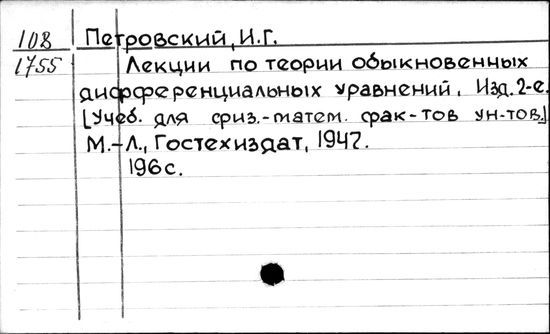 108 Петровский, И.Г.
1755 Лекции по теории обыкновенных
дифференциальных уравнений. Изд. 2-е.
[Учеб. для физ.-матем. фак-тов ун-тов.]
М.-Л., Гостехиздат, 1947.
196 с.